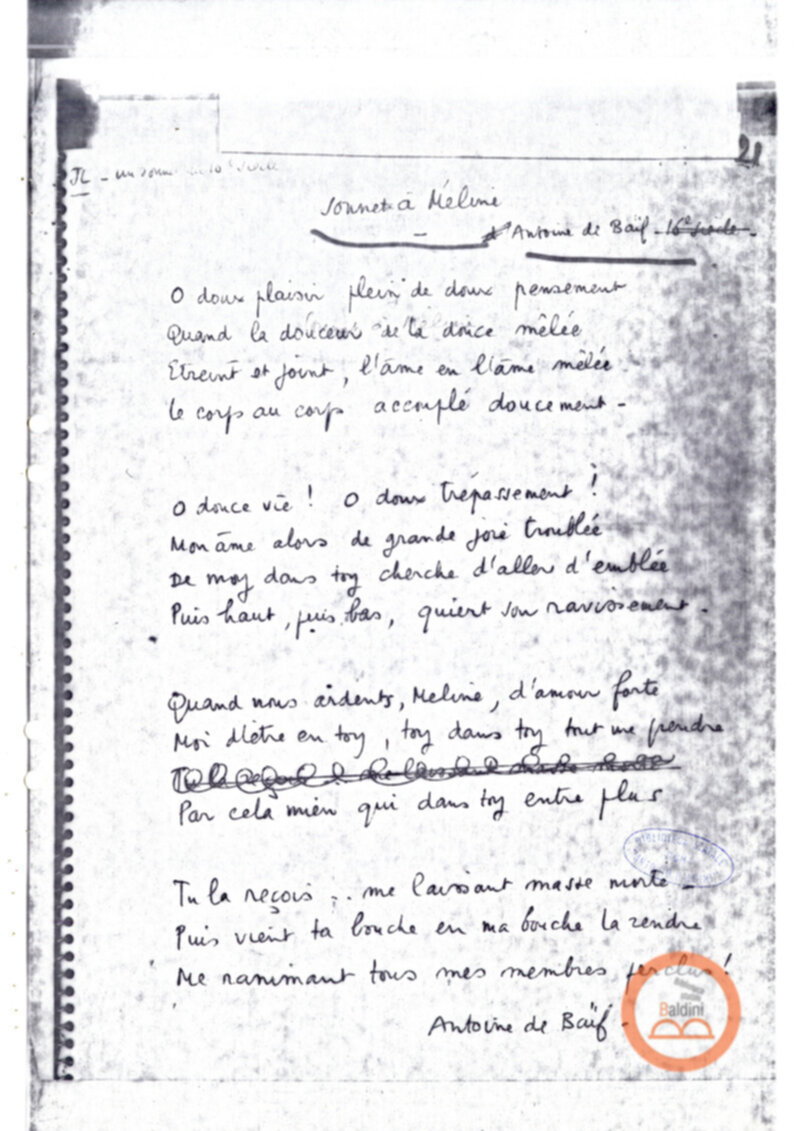 21
JL - un sonnet
Sonnet a Méline
Antoine de Baïf - 16e siècle -
O doux plaisir plein de doux pensement
Quand la douceur de la douce mêlée
Etreint et joint, l'âme en l'âme mêlée
Le corps au corps accouplé doucement -
O douce vie ! O doux trépassement !
Mon âme alors de grande joie troublée
De moy dans toy cherche d'aller d'emblée
Puis haut, puis bas, quiert son ravissement -
Quand nous ardents, Meline, d'amour forte
Moi d'être en toy, toy dans toy tout me prendre
Par cela mien qui dans toy entre plus
Tu la reçois .. me laissant masse morte -
Puis vient ta bouche en ma bouche la rendre
Me ranimant tous mes membres perclus !
Antoine de Baïf -
Baldini